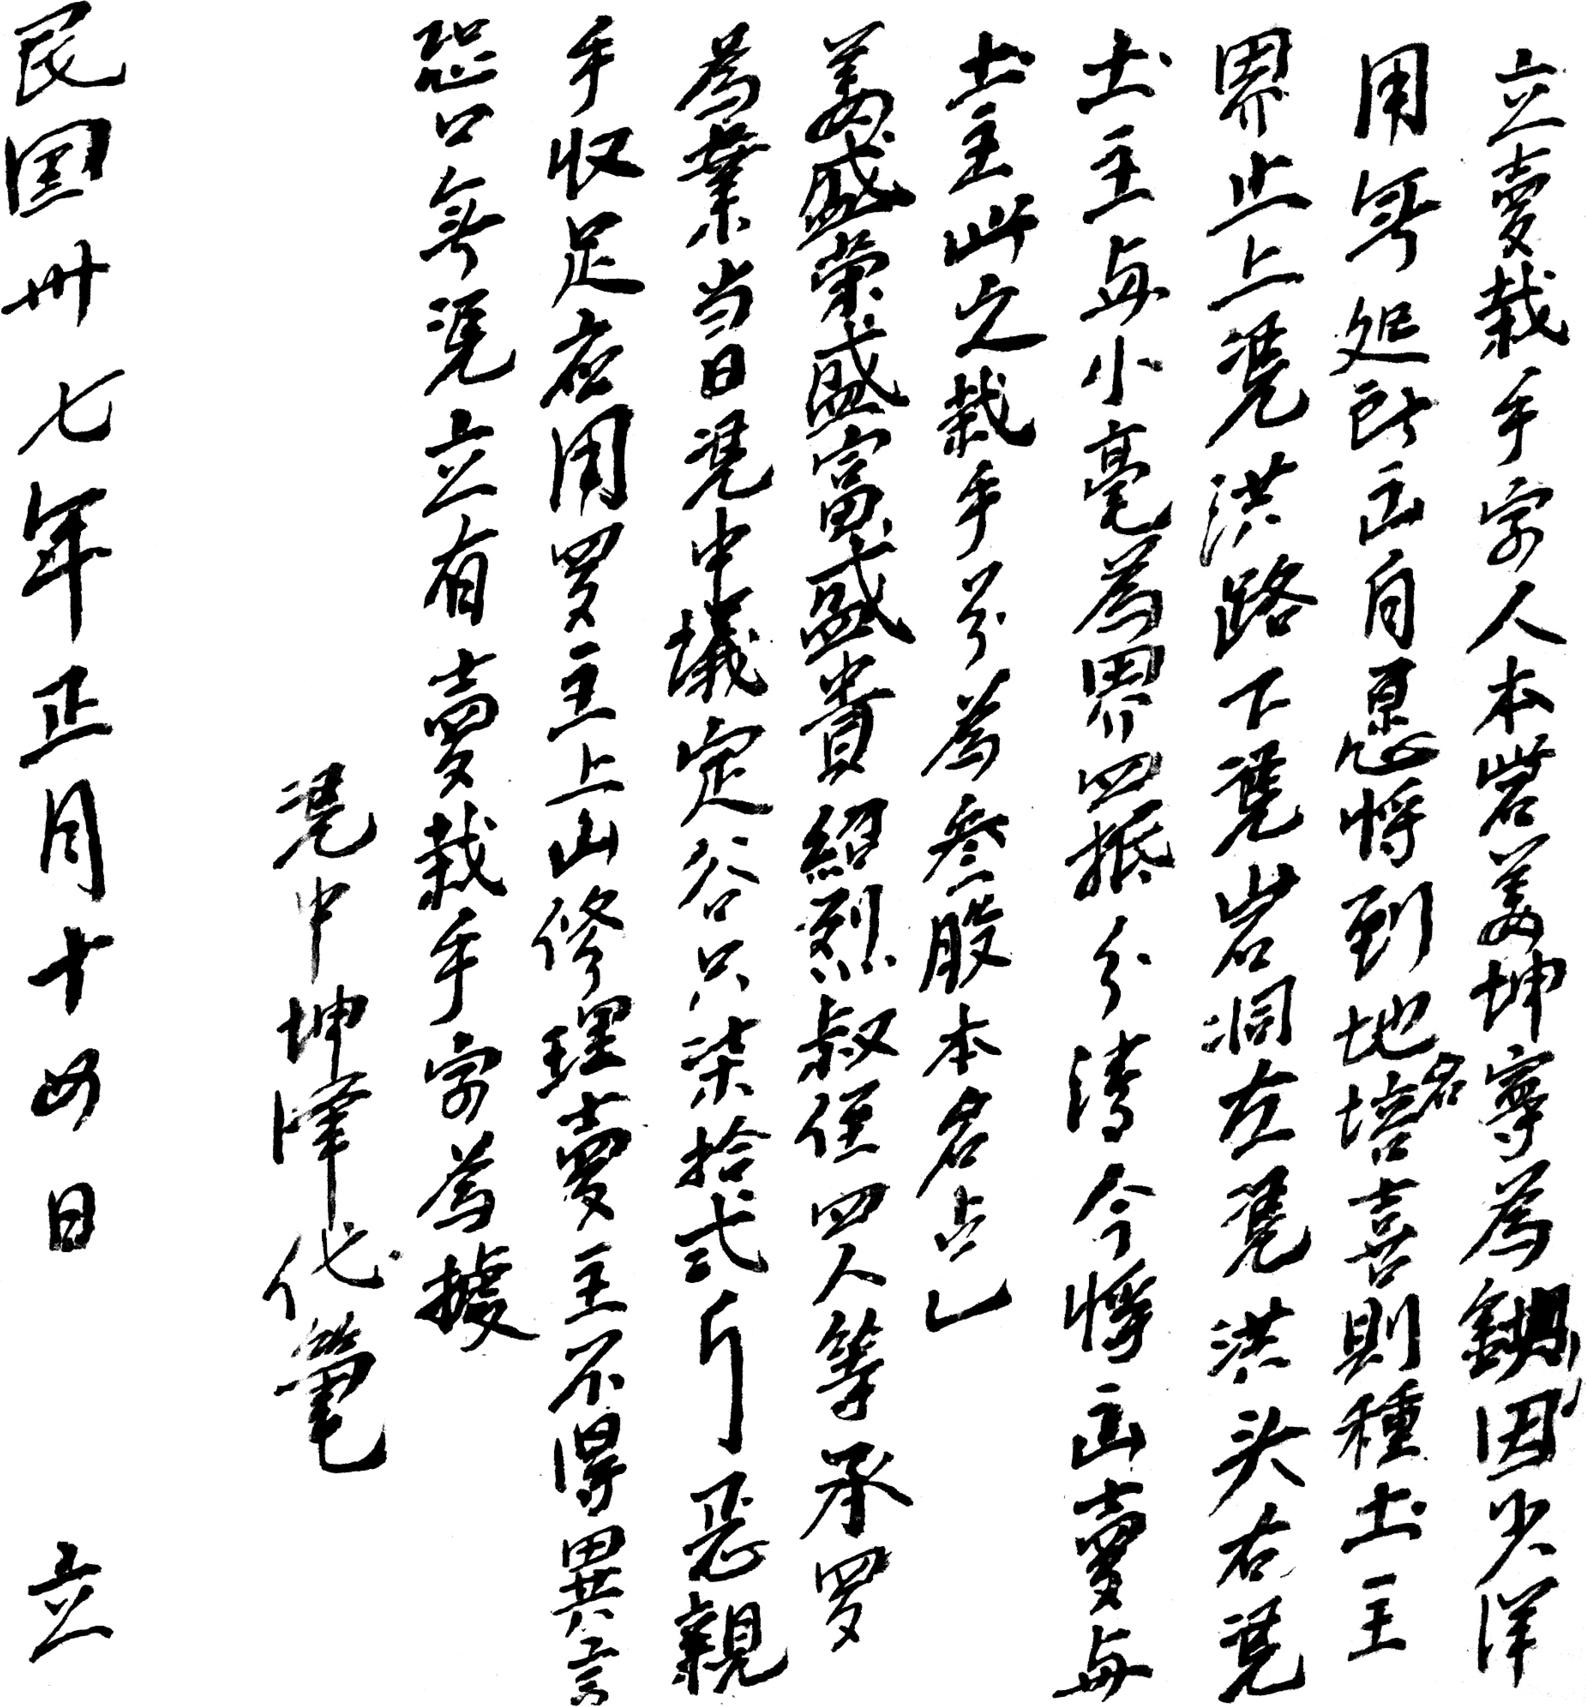 立賣栽手字人本砦姜坤寧為因少洋
用無処所出自愿将到地名培喜則種土主
界止上凴洪路下凴岩洞左凴洪头右凴
土主与小毫為界四抵分清今将出賣与
土主此之栽手分為叁股本名占乙
姜盛荣盛富盛貴紹烈叔侄四人等承買
為業当日凴中議定谷只柒拾弍斤親
手收足應用買主上山修理賣主不得異言
恐口無凴立有賣栽手字為據
凴中坤澤代筆
民国卅七年正月十四日 立